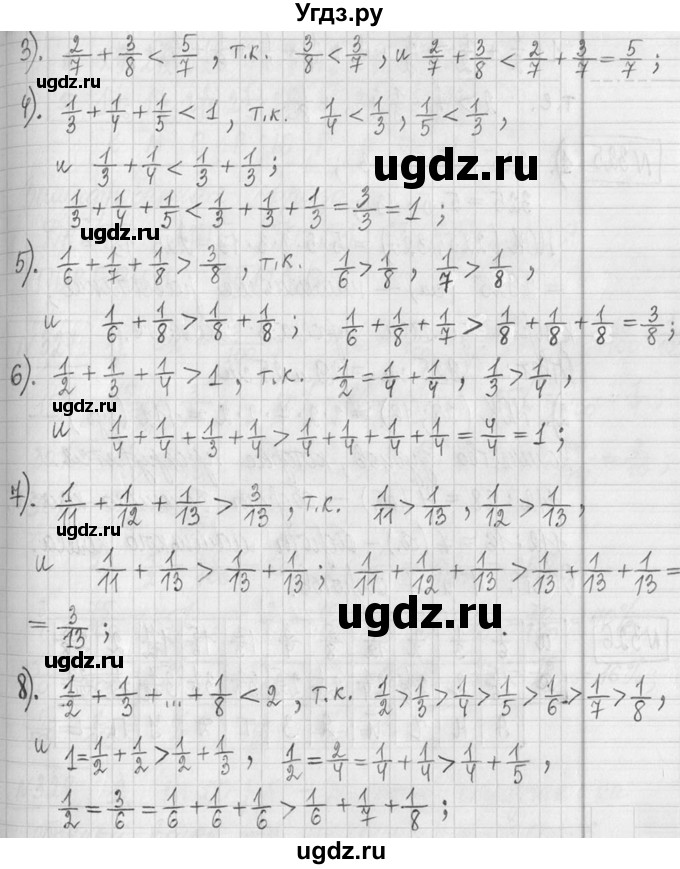 Угдз.ру
3). 2/7 + 3/8 < 5/7 , т.к. 3/8 < 3/7 , и 2/7 + 3/8 < 2/7 + 3/7 = 5/7 ;
ugdz.ru
4). 1/3 + 1/4 + 1/5 < 1 , т.к. 1/4 < 1/3 , 1/5 < 1/3 ,
и 1/3 + 1/4 < 1/3 + 1/3 ;
ugdz.ru
1/3 + 1/4 + 1/5 < 1/3 + 1/3 + 1/3 = 3/3 = 1 ;
ugdz.ru
5). 1/6 + 1/7 + 1/8 > 3/8 , т.к. 1/6 > 1/8 , 1/7 > 1/8 ,
и 1/6 + 1/8 > 1/8 + 1/8 ; 1/6 + 1/8 + 1/7 > 1/8 + 1/8 + 1/8 = 3/8 ;
6). 1/2 + 1/3 + 1/4 > 1 , т.к. 1/2 = 1/4 + 1/4 , 1/3 > 1/4 ,
ugdz.ru
и 1/4 + 1/4 + 1/3 + 1/4 > 1/4 + 1/4 + 1/4 + 1/4 = 4/4 = 1 ;
7). 1/11 + 1/12 + 1/13 > 3/13 , т.к. 1/11 > 1/13 , 1/12 > 1/13 ,
ugdz.ru
и 1/11 + 1/13 > 1/13 + 1/13 ; 1/11 + 1/12 + 1/13 > 1/13 + 1/13 + 1/13 =
ugdz.ru
= 3/13 ;
ugdz.ru
8). 1/2 + 1/3 + ... + 1/8 < 2 , т.к. 1/2 > 1/3 > 1/4 > 1/5 > 1/6 > 1/7 > 1/8 ,
и 1 = 1/2 + 1/2 > 1/2 + 1/3 , 1/2 = 2/4 = 1/4 + 1/4 > 1/4 + 1/5 ,
ugdz.ru
1/2 = 3/6 = 1/6 + 1/6 + 1/6 > 1/6 + 1/7 + 1/8 ;
ugdz.ru